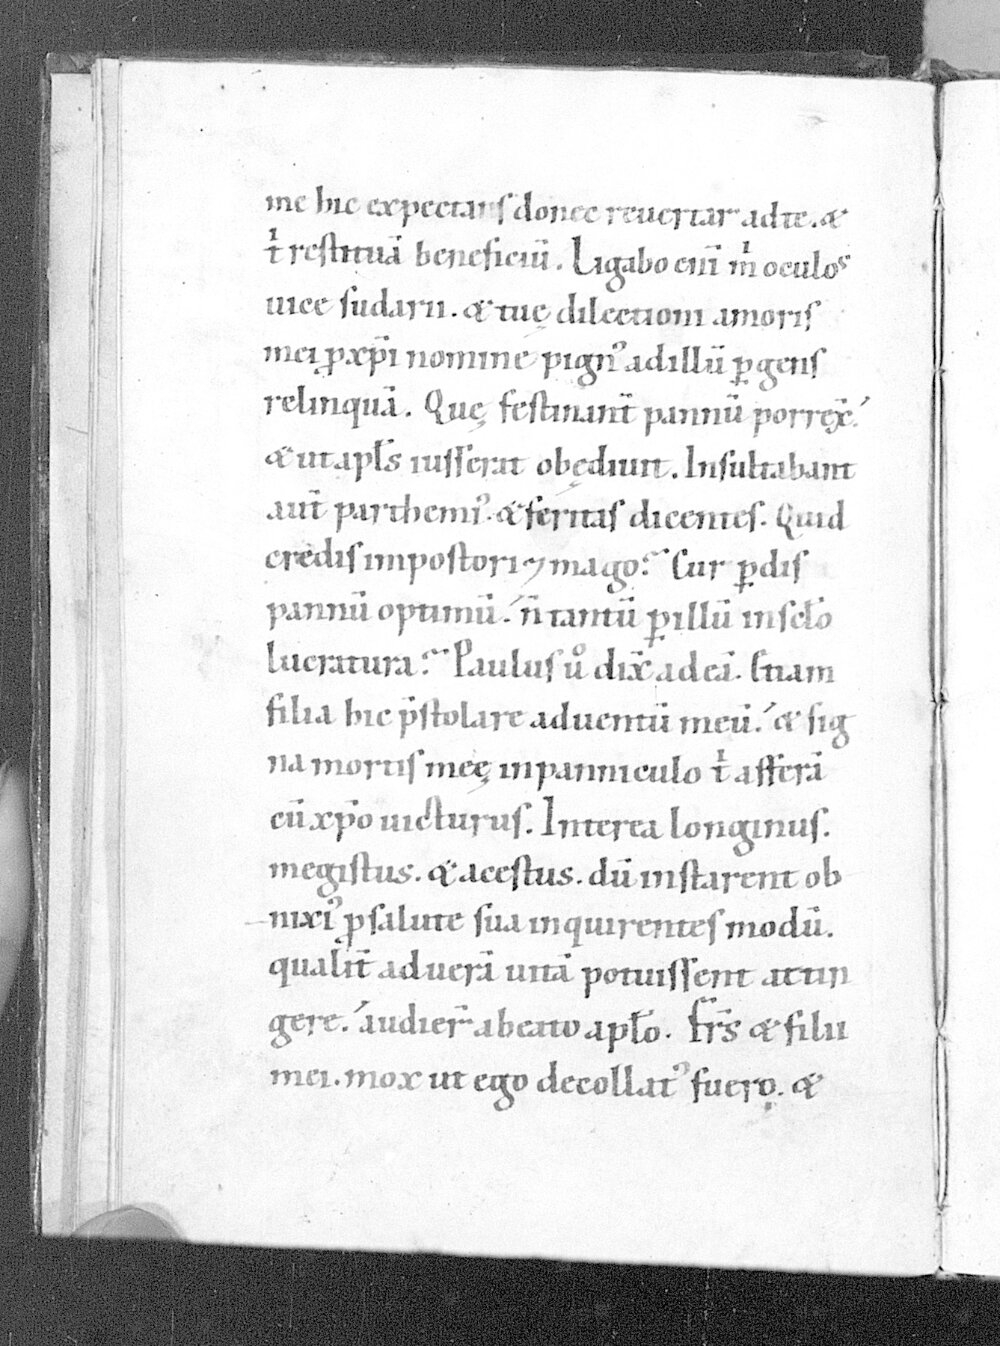 me hic expectans donec reuertar ad te. &
t̍ restituā beneficiū. Ligabo eni̅ m̍ oculoˢ
uice sudarii. & tuę dilectioni amoris
mei ꝓ xp̄i nomine pign᾿ ad illū ꝑgens
relinquā. Quę festinant̄ pannū porrex̄.᾿
& ut apl̄s iusserat obędiuit. Insultabant
aut̄ parthemi᾿. & feritas dicentes. Quid
credis impostori ⁊ mago? Cur ꝑdis
pannū optimū.᾿ n̄ tantū ꝑ illū in sc̄lo
lucratura? Paulus ů dix̄ ad eā. Etiam
filia hic p̄stolare aduentū meū.᾿ & sig
na mortis meę in panniculo t̍ afferā
cū xp̄o uicturus. Interea longinus.
megistus. & acestus. dū instarent ob
nixi᾿ ꝓ salute sua inquirentes modū.
qualit̄ ad uerā uitā potuissent attin
gere.᾿ audier̄ a beato apl̄o. Fr̄s & filii
mei. mox ut ego decollat᾿ fuero. &